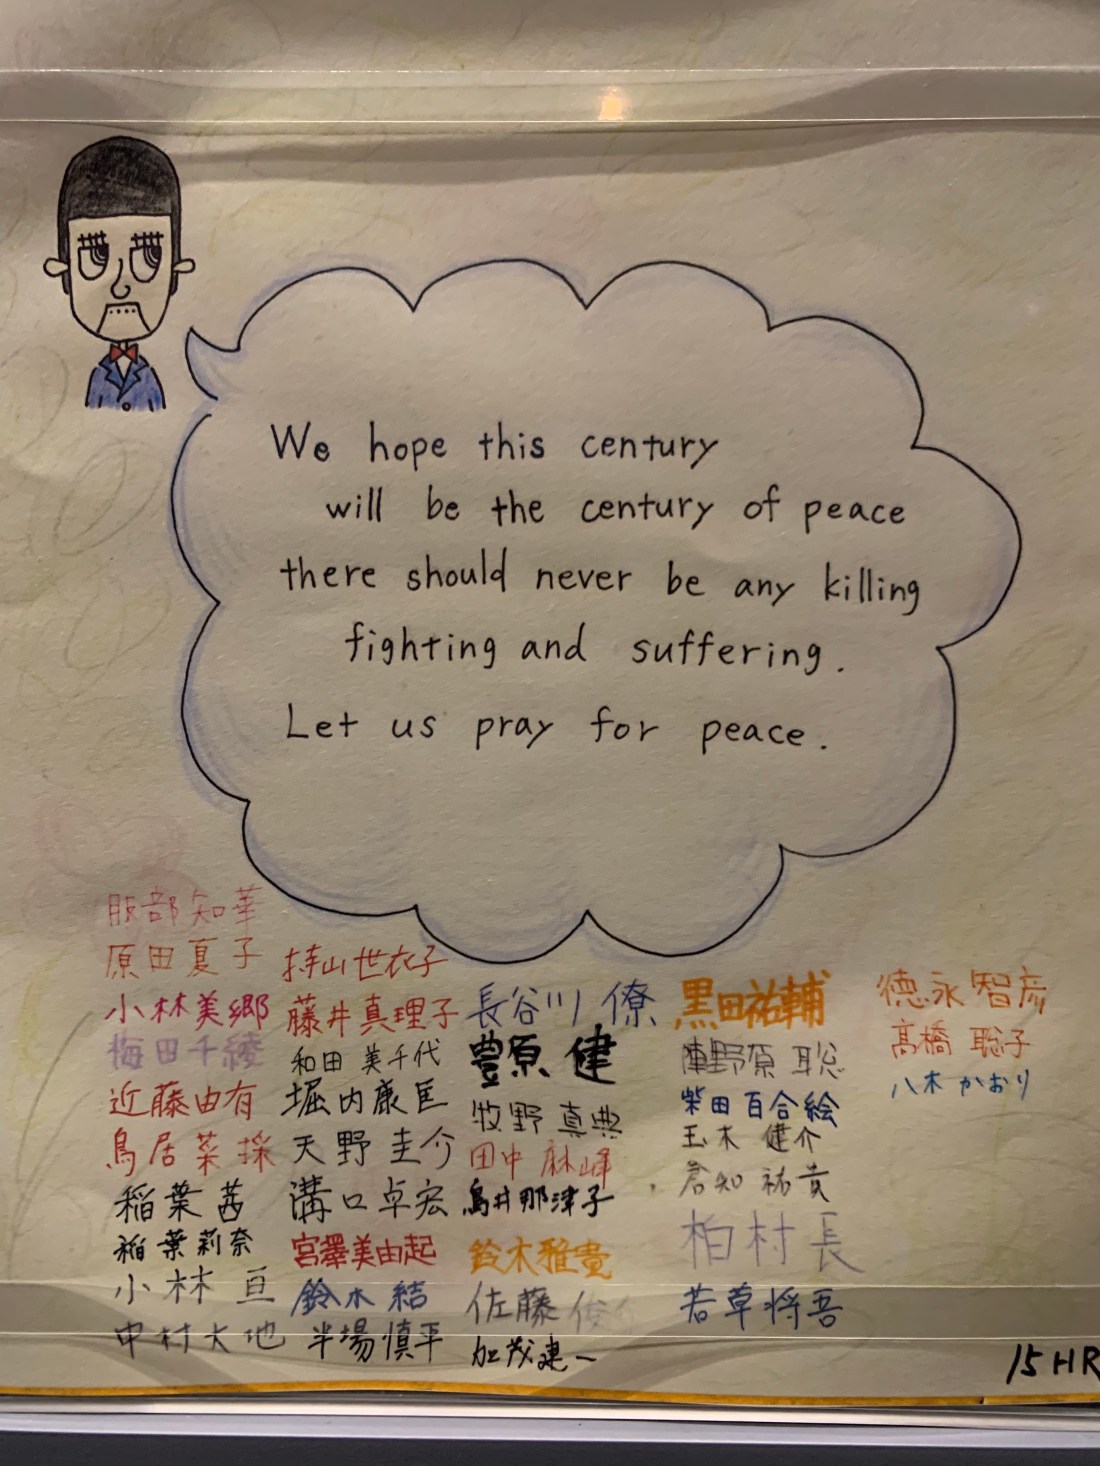 We hope this century
will be the century of peace
there should never be any killing
fighting and suffering.
Let us pray for peace.
服部知華
原田夏子
小林美郷
梅田千綾
近藤由有
鳥居菜採
稲葉茜
稲葉莉奈
小林亘
中村大地
持山世衣子
藤井真理子
和田美千代
堀内康匡
天野圭介
溝口卓宏
宮澤美由起
鈴木結
半場慎平
長谷川僚
豊原健
牧野真典
田中麻峰
鳥井那津子
鈴木雅貴
佐藤俊
加茂建一
黒田祐輔
陣野原聡
柴田百合絵
玉木健介
祐貴
柏村長
若草将吾
徳永智彦
高橋聡子
八木かおり
15HR